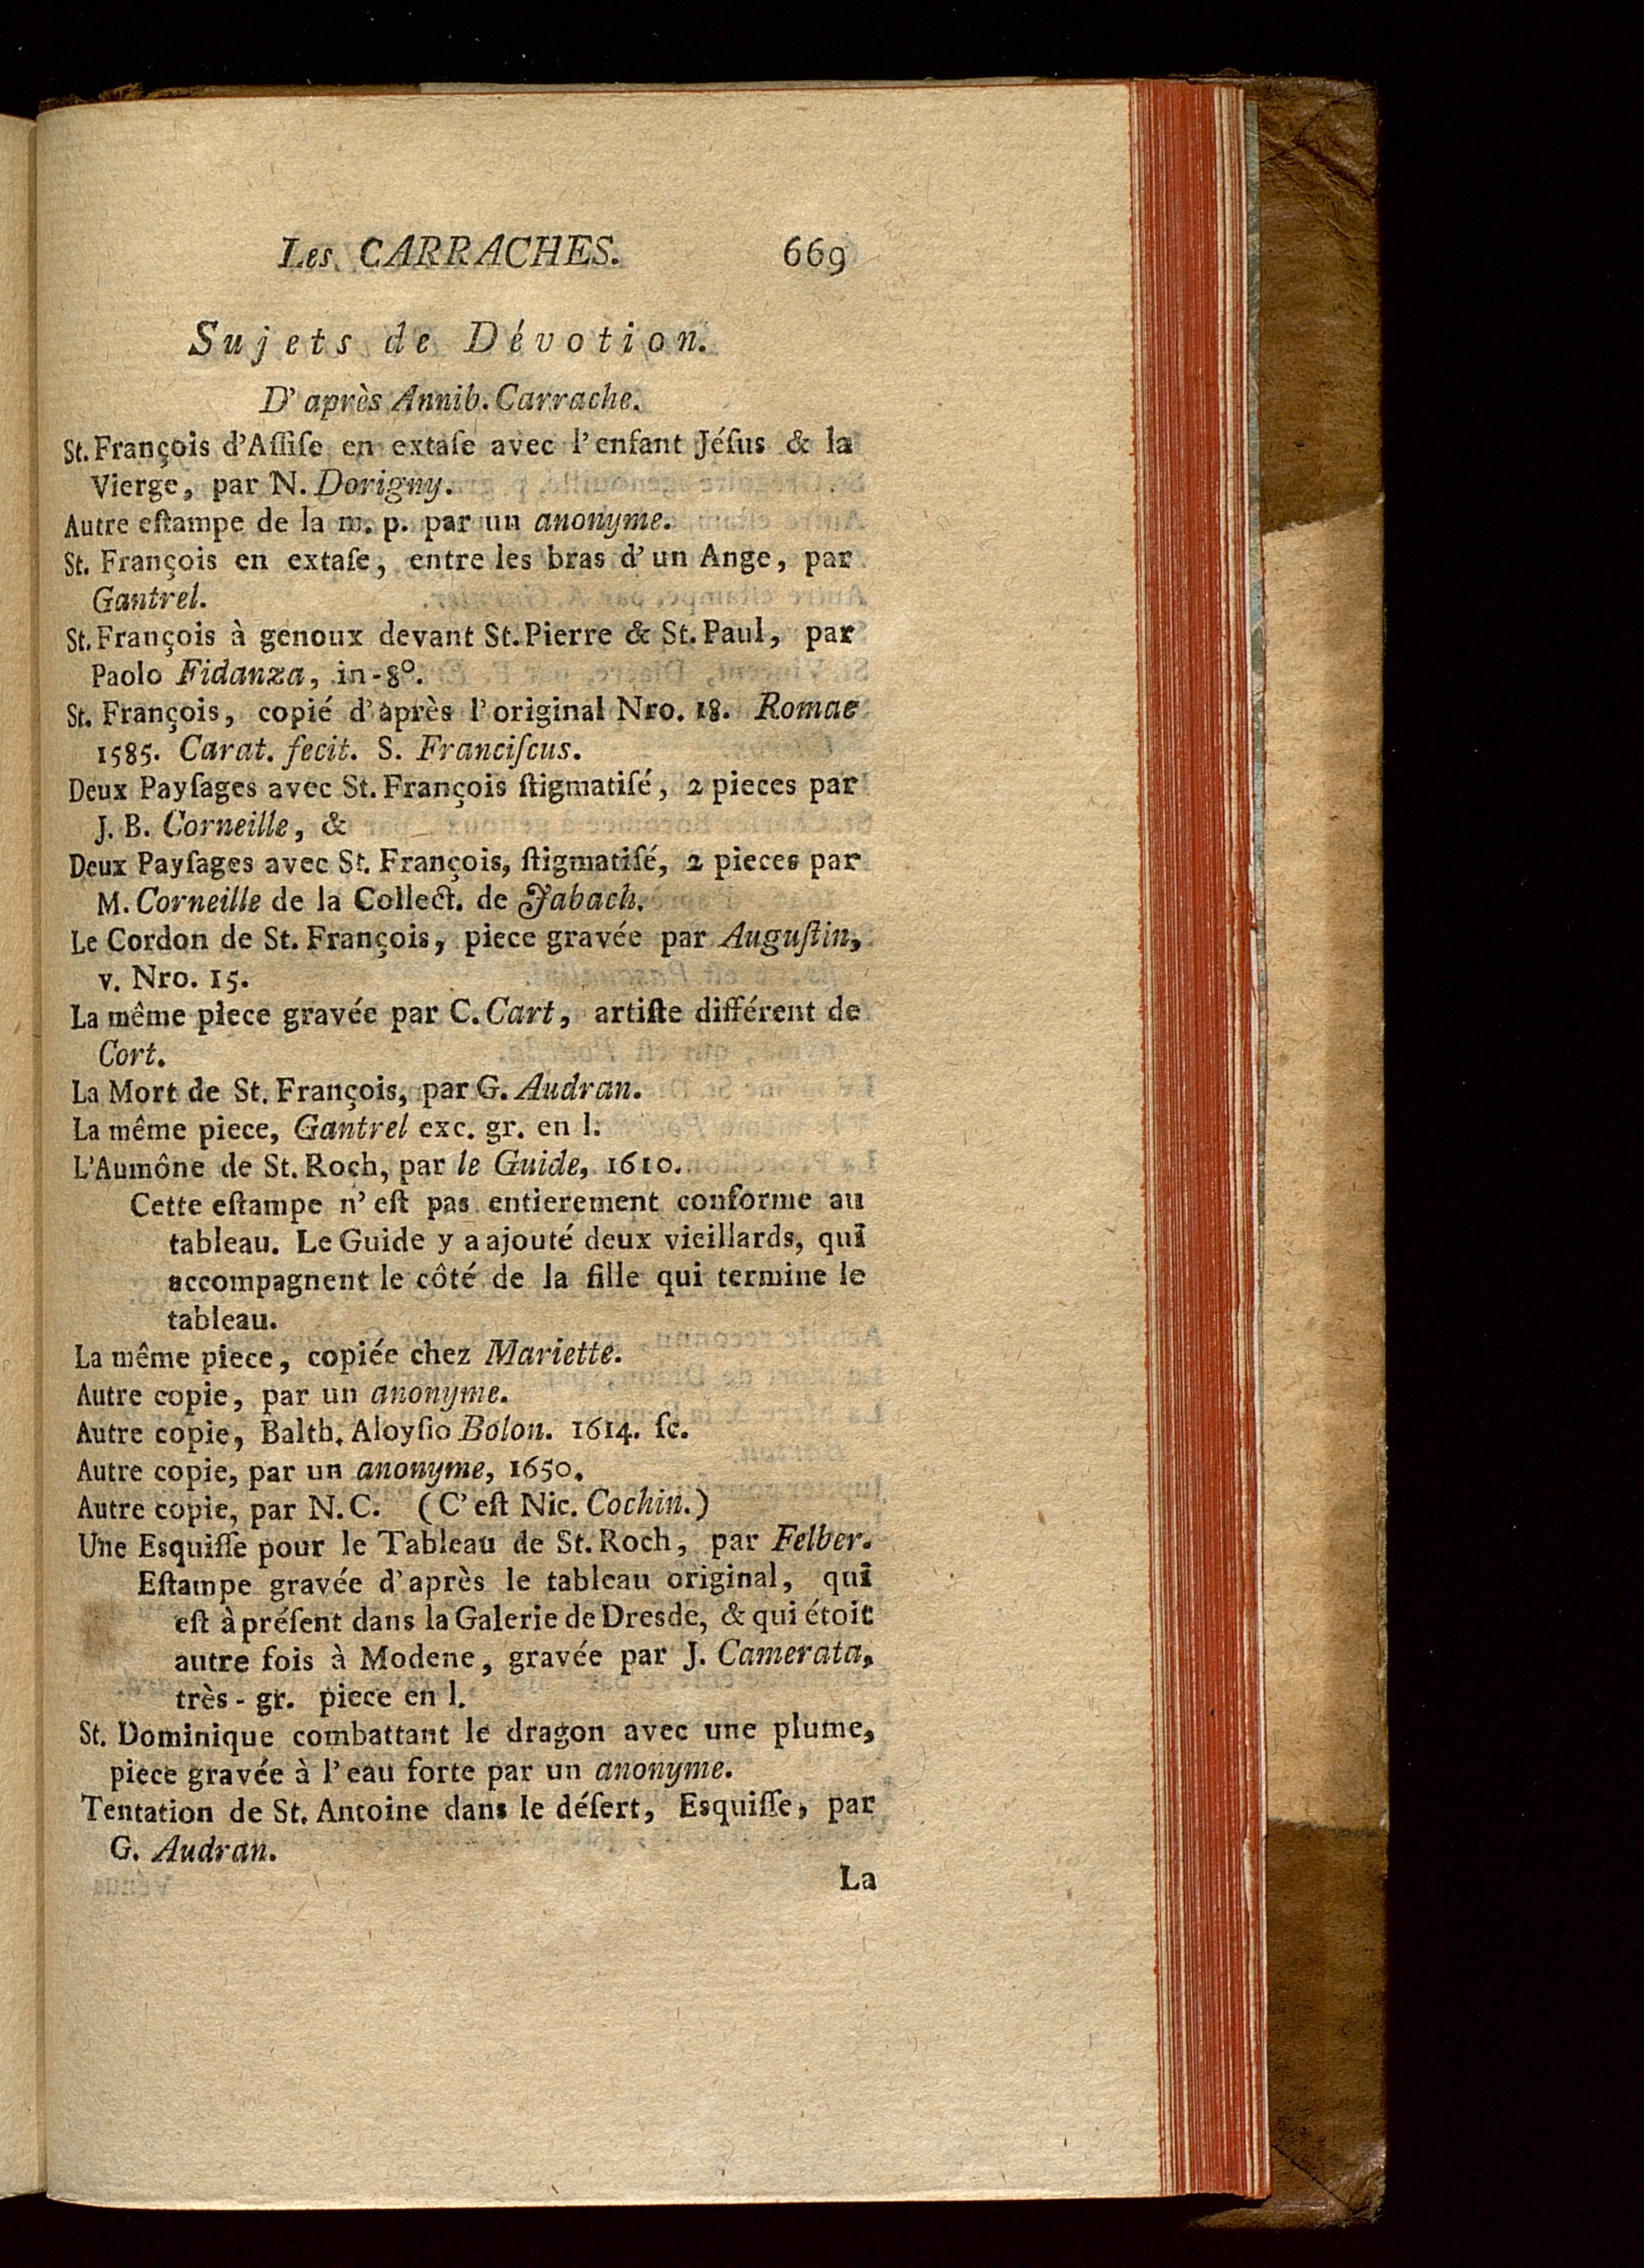 Les CARRACHES. 669
Sujets de Dévotion.
D'après Annib. Carrache.
St. François d'Aſſiſe en extaſe avec l'enfant Jéſus & la
Vierge, par N. Dorigny.
Autre eſtampe de la m. p. par un anonyme.
St. François en extaſe, entre les bras d'un Ange, par
Gantrel.
St. François à genoux devant St. Pierre & St. Paul, par
Paolo Fidanza, in-8°.
St. François, copié d'après l'original Nro. 18. Romae
1585. Carat. fecit. S. Franciſcus.
Deux Payſages avec St. François ſtigmatiſé, 2 pieces par
J. B. Corneille, &
Deux Payſages avec St. François, ſtigmatiſé, 2 pieces par
M. Corneille de la Collect. de Jabach.
Le Cordon de St. François, piece gravée par Auguſtin,
v. Nro. 15.
La même piece gravée par C. Cart, artiſte différent de
Cort.
La Mort de St. François, par G. Audran.
La même piece, Gantrel exc. gr. en l.
L'Aumône de St. Roch, par le Guide, 1610.
Cette eſtampe n'eſt pas entierement conforme au
tableau. Le Guide y a ajouté deux vieillards, qui
accompagnent le côté de la fille qui termine le
tableau.
La même piece, copiée chez Mariette.
Autre copie, par un anonyme.
Autre copie, Balth. Aloyſio Bolon. 1614. ſc.
Autre copie, par un anonyme, 1650.
Autre copie, par N. C. (C'eſt Nic. Cochin.)
Une Esquiſſe pour le Tableau de St. Roch, par Felber.
Eſtampe gravée d'après le tableau original, qui
eſt à préſent dans la Galerie de Dresde, & qui étoit
autre fois à Modene, gravée par J. Camerata,
très-gr. piece en l.
St. Dominique combattant le dragon avec une plume,
piece gravée à l'eau forte par un anonyme.
Tentation de St. Antoine dans le déſert, Esquiſſe, par
G. Audran.
La